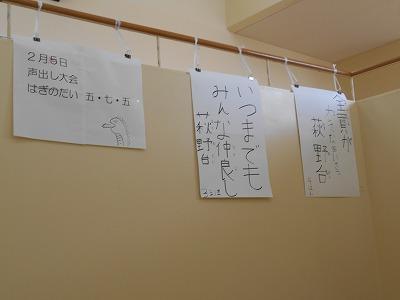 2月5日
声出し大会
はぎのだい 五・七・五
いつまでも
みんな仲良し
萩野台
全員が
萩野台